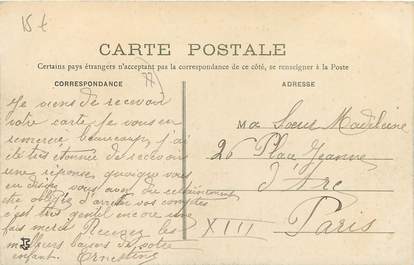 15 t
CARTE POSTALE
Certains pays étrangers n'acceptant pas la correspondance de ce côté, se renseigner à la Poste
CORRESPONDANCE
77
Je viens de recevoir
votre carte, je vous en
remercie beaucoup, j'ai
été très étonnée de recevoir
une réponse, quoique vous
en disiez vous avez du certainement
être obligée d'arrêter vos comptes
c'est très gentil encore une
fois merci Recevez les
meilleurs baisers de votre
enfant. Ernestine
ADRESSE
Ma Soeur Madeleine
26 Place Jeanne
d'Arc
XIII Paris